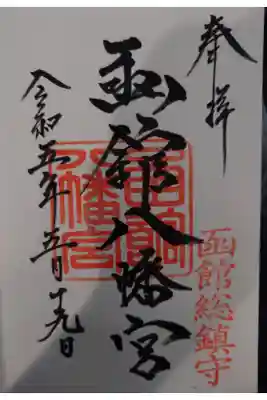 奉拝
函館総鎮守
函館八幡宮
函館八幡宮
令和五年五月十九日